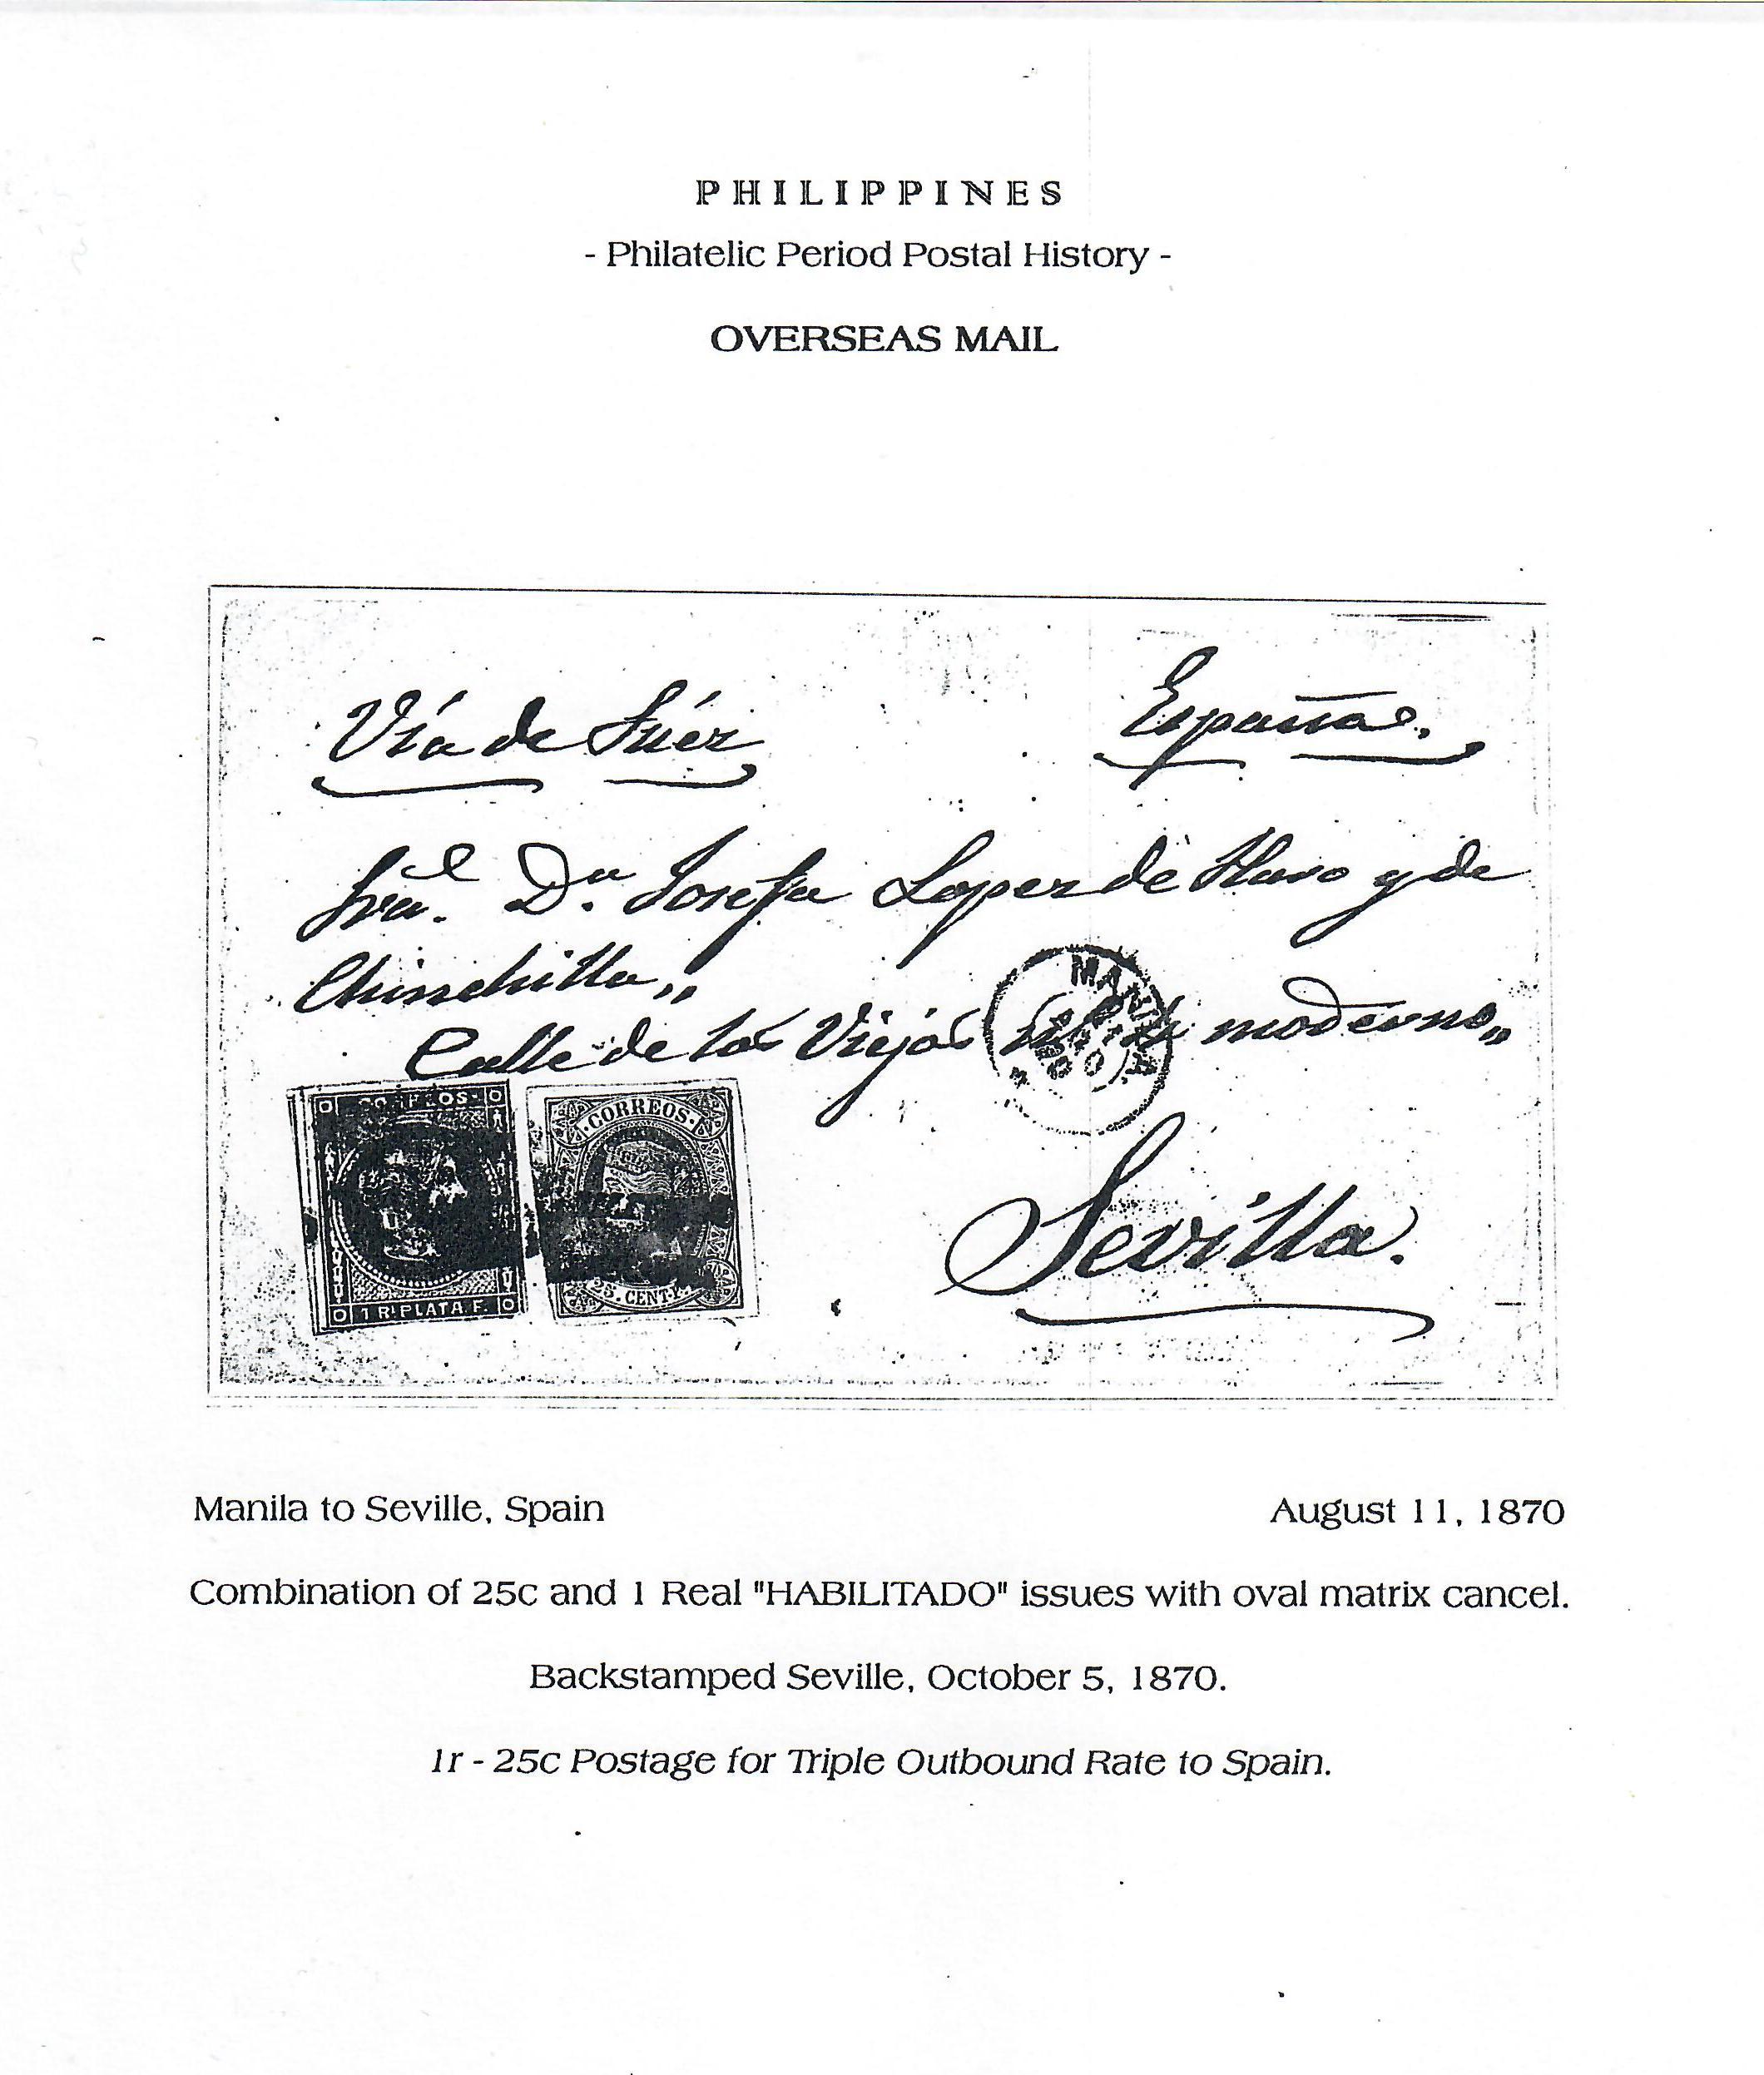 PHILIPPINES
- Philatelic Period Postal History -
OVERSEAS MAIL
Vía de Suéz
España.
Sra. Da. Josefa Lopez de Haro y de
Chinchilla,,
Calle de las Viejas moderno,,
MANILA
Sevilla.
CORREOS
1 Rl PLATA. F.
CORREOS
CENT
Manila to Seville, Spain
August 11, 1870
Combination of 25c and 1 Real "HABILITADO" issues with oval matrix cancel.
Backstamped Seville, October 5, 1870.
1r - 25c Postage for Triple Outbound Rate to Spain.